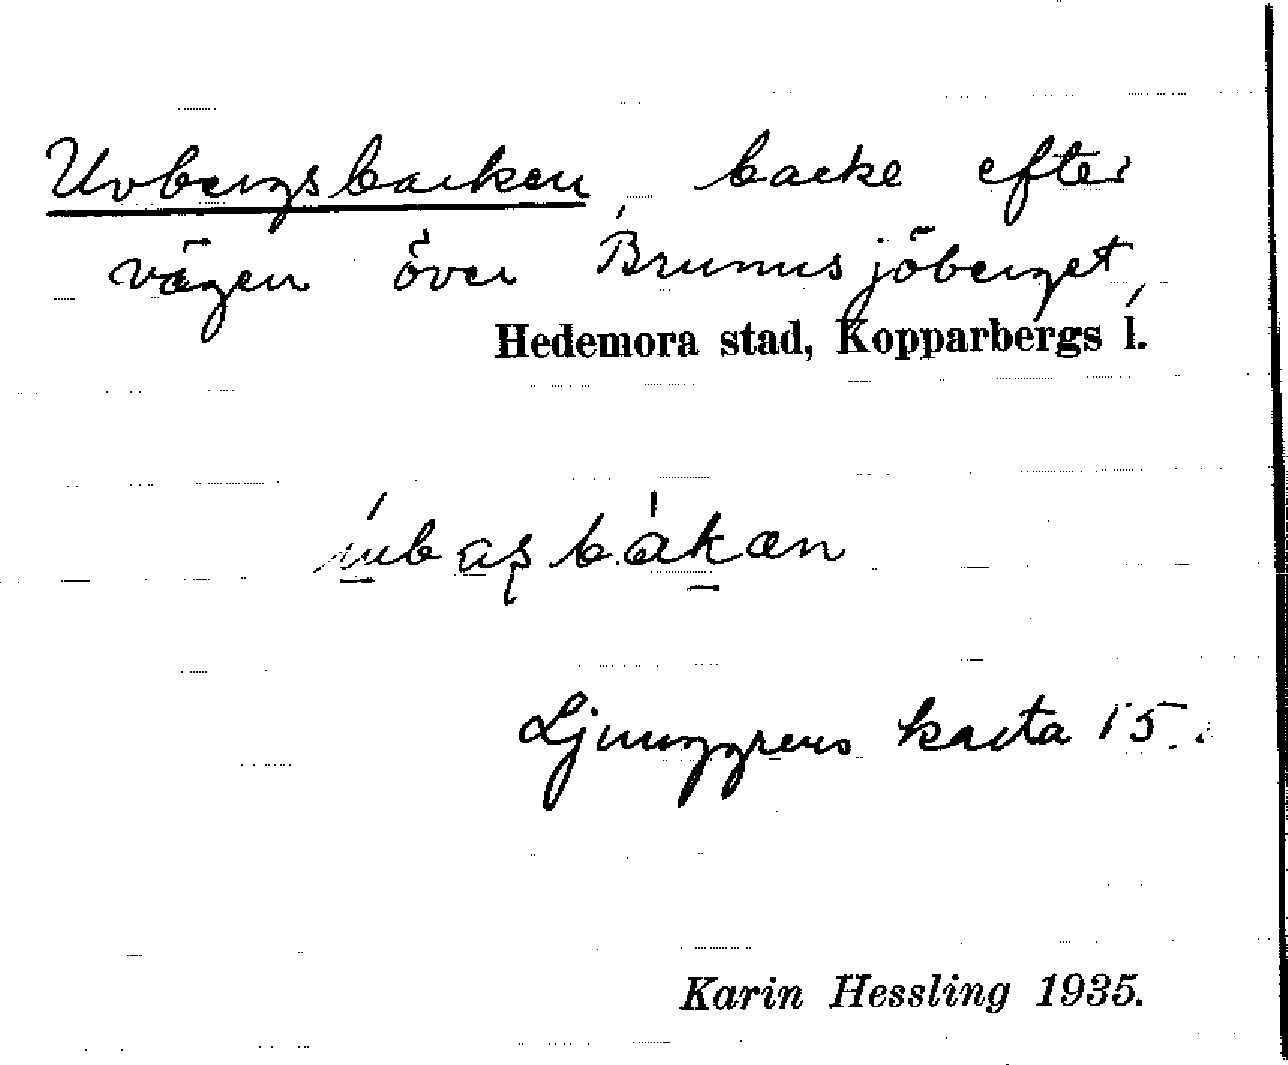 Uvbergsbacken, backe efter
vägen över Brunnsjöberget,
Hedemora stad, Kopparbergs l.
Ljunggrens karta 15.
Karin Hessling 1935.